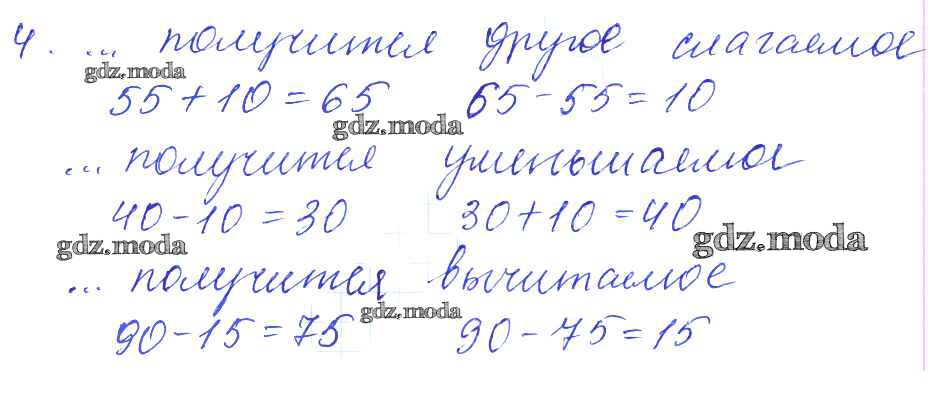 4. ... получится другое слагаемое
gdz.moda
55 + 10 = 65 65 - 55 = 10
gdz.moda
... получится уменьшаемое
40 - 10 = 30 30 + 10 = 40
gdz.moda gdz.moda
... получится вычитаемое
gdz.moda
90 - 15 = 75 90 - 75 = 15